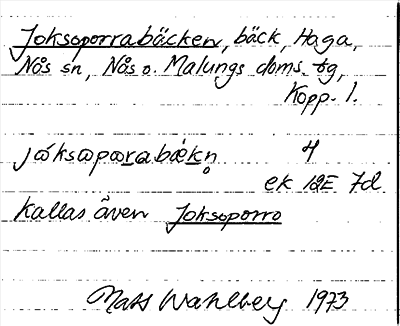 Joksoporrabäcken, bäck, Haga,
Nås sn, Nås o. Malungs doms. tg,
Kopp. l.
jóksωpωrabæ̀kn̥ 4
ek 12E 7d
Kallas även Joksoporro
Mats Wahlberg 1973